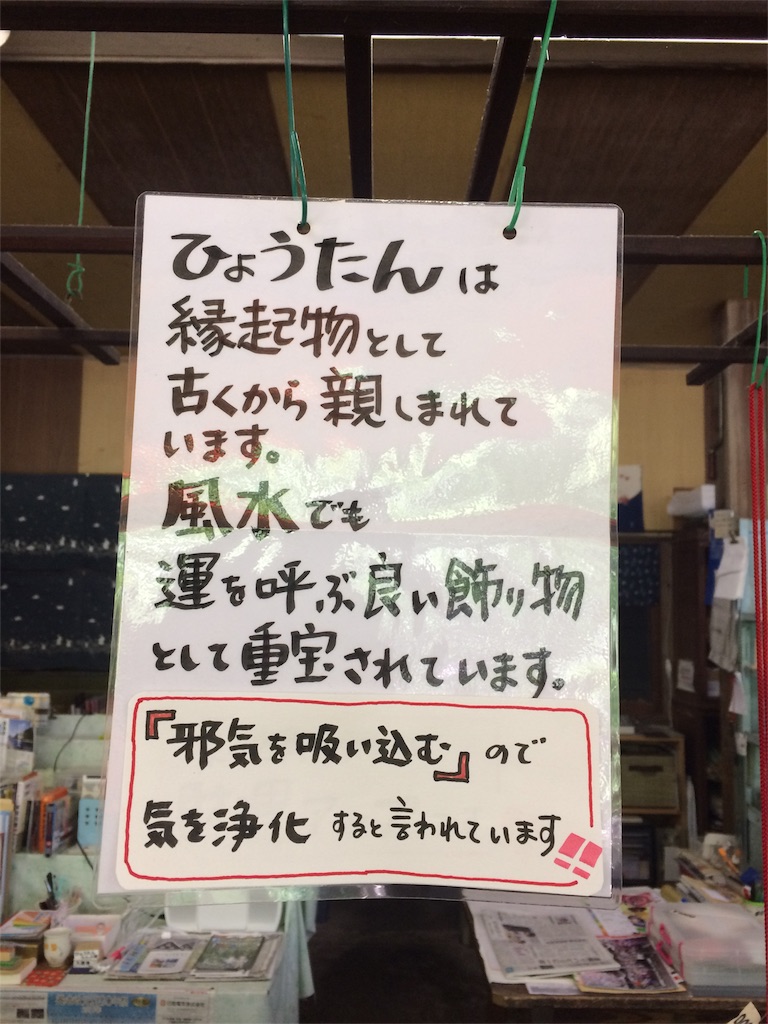 ひょうたんは
縁起物として
古くから親しまれて
います。
風水でも
運を呼ぶ良い飾り物
として重宝されています。
『邪気を吸い込む』ので
気を浄化すると言われています